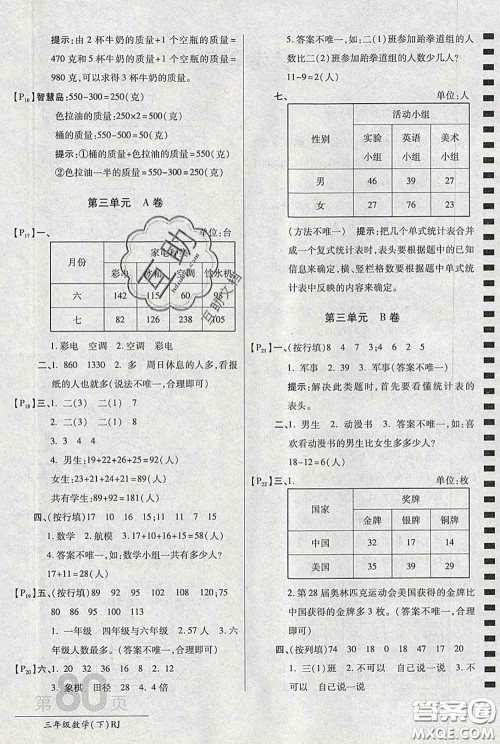 提示:由 2 杯牛奶的质量+1 个空瓶的质量=
470 克和 5 杯牛奶的质量+1 个空瓶的质量=
980 克,可以求得 3 杯牛奶的质量。
【P16】智慧岛:550-300=250(克)
色拉油的质量:250×2=500(克)
桶的质量:550-500=50(克)
提示:①桶的质量+色拉油的质量=550(克)
②半桶色拉油的质量=550-300=250(克)
第三单元 A 卷
【P17】一、 单位:台
月份
彩电 空调 饮水机
六 142 115 60
七 82 126 238 105
1. 彩电 空调 彩电 空调
二、1. 860 1330 2. 多 周日休息的人多,看报
纸的人也就多(说法不唯一,合理即可)
【P18】三、1. 二(3) 二(1) 2. 二(3)
3. 3 4 4
4. 男生:19+22+26+25=92(人)
女生:21+23+21+24=89(人)
共有学生:89+92=181(人)
四、(按行填)17 10 16 15 9 7 15
1. 数学 2. 航模 3. 17+10+16+15=58(人)
4. 答案不唯一,如:数学小组一共有多少人?
17+11=28(人)
【P19】五、(按行填)95 92 90 118 97 120
80 86 95 100 88 98
1. 一年级 四年级与六年级 2. 57 人 3. 六
年级人数最多。(答案不唯一,合理即可)
【P20】六、1. 20 32 36 8 16 24
3. 象棋 田径 28 4. 2 倍 4 倍
第80页
三年级数学(下)RJ
5. 答案不唯一,如:二(1)班参加跆拳道组的人
数比二(2)班参加跆拳道组的人数少几人?
11-9=2(人)
七、 单位:人
性别 活动小组
实验小组 英语小组 美术小组
男 46 39 27
女 27 76 23
(方法不唯一) 提示:把几个单式统计表合
并成一个复式统计表,表头要根据题中的已
知信息来确定,横、竖栏格数要根据题中单式统
计表中反映的内容来确定。
第三单元 B 卷
【P21】一、(按行填)8 4 7 3 4 6 2 5
1. 军事 2. 39 3. 军事(答案不唯一)
提示:解决此类题时,首先要看懂统计表的
表头。
二、1. 男生 2. 动漫书 3. 答案不唯一,如:喜
欢看动漫书的男生比女生多多少人?
18-12=6(人)
【P22】三、1. 单位:枚
国家 奖牌
金牌 银牌 铜牌
中国 32 17 14
美国 35 39 29
2. 第 28 届奥林匹克运动会美国获得的金牌
比中国获得的金牌多 3 枚。(答案不唯一)
四、(按行填)25 74 30 18 0 31 74
1. 三(1)班 不可以 自己说一说
2. 不可以 自己说一说
互助
互助文档
答案圈
MXQE.COM